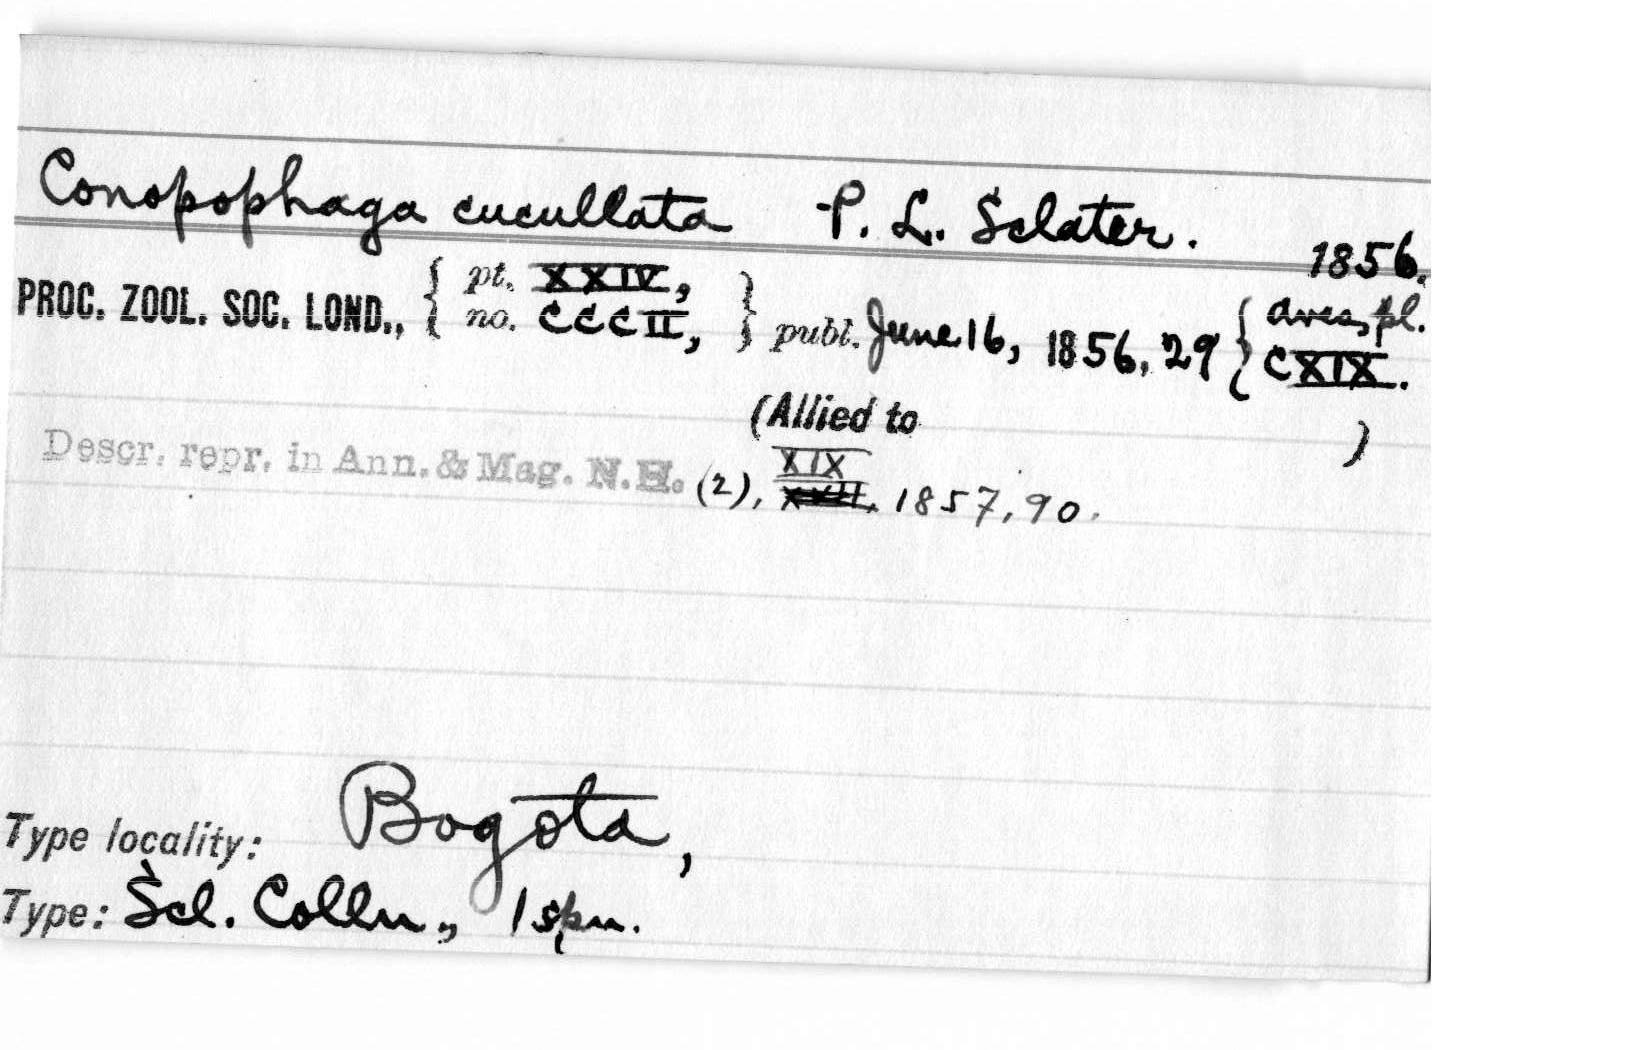 Conopophaga cucullata P. L. Sclater. 1856.
PROC. ZOOL. SOC. LOND., { pt. XXIV, no. CCCII, } publ. June 16, 1856, 29 { Aves, pl. CXIX.
(Allied to )
Descr. repr. in Ann. & Mag. N.H. (2), XIX 1857, 90.
Type locality: Bogota,
Type: Scl. Colln., 1 spm.